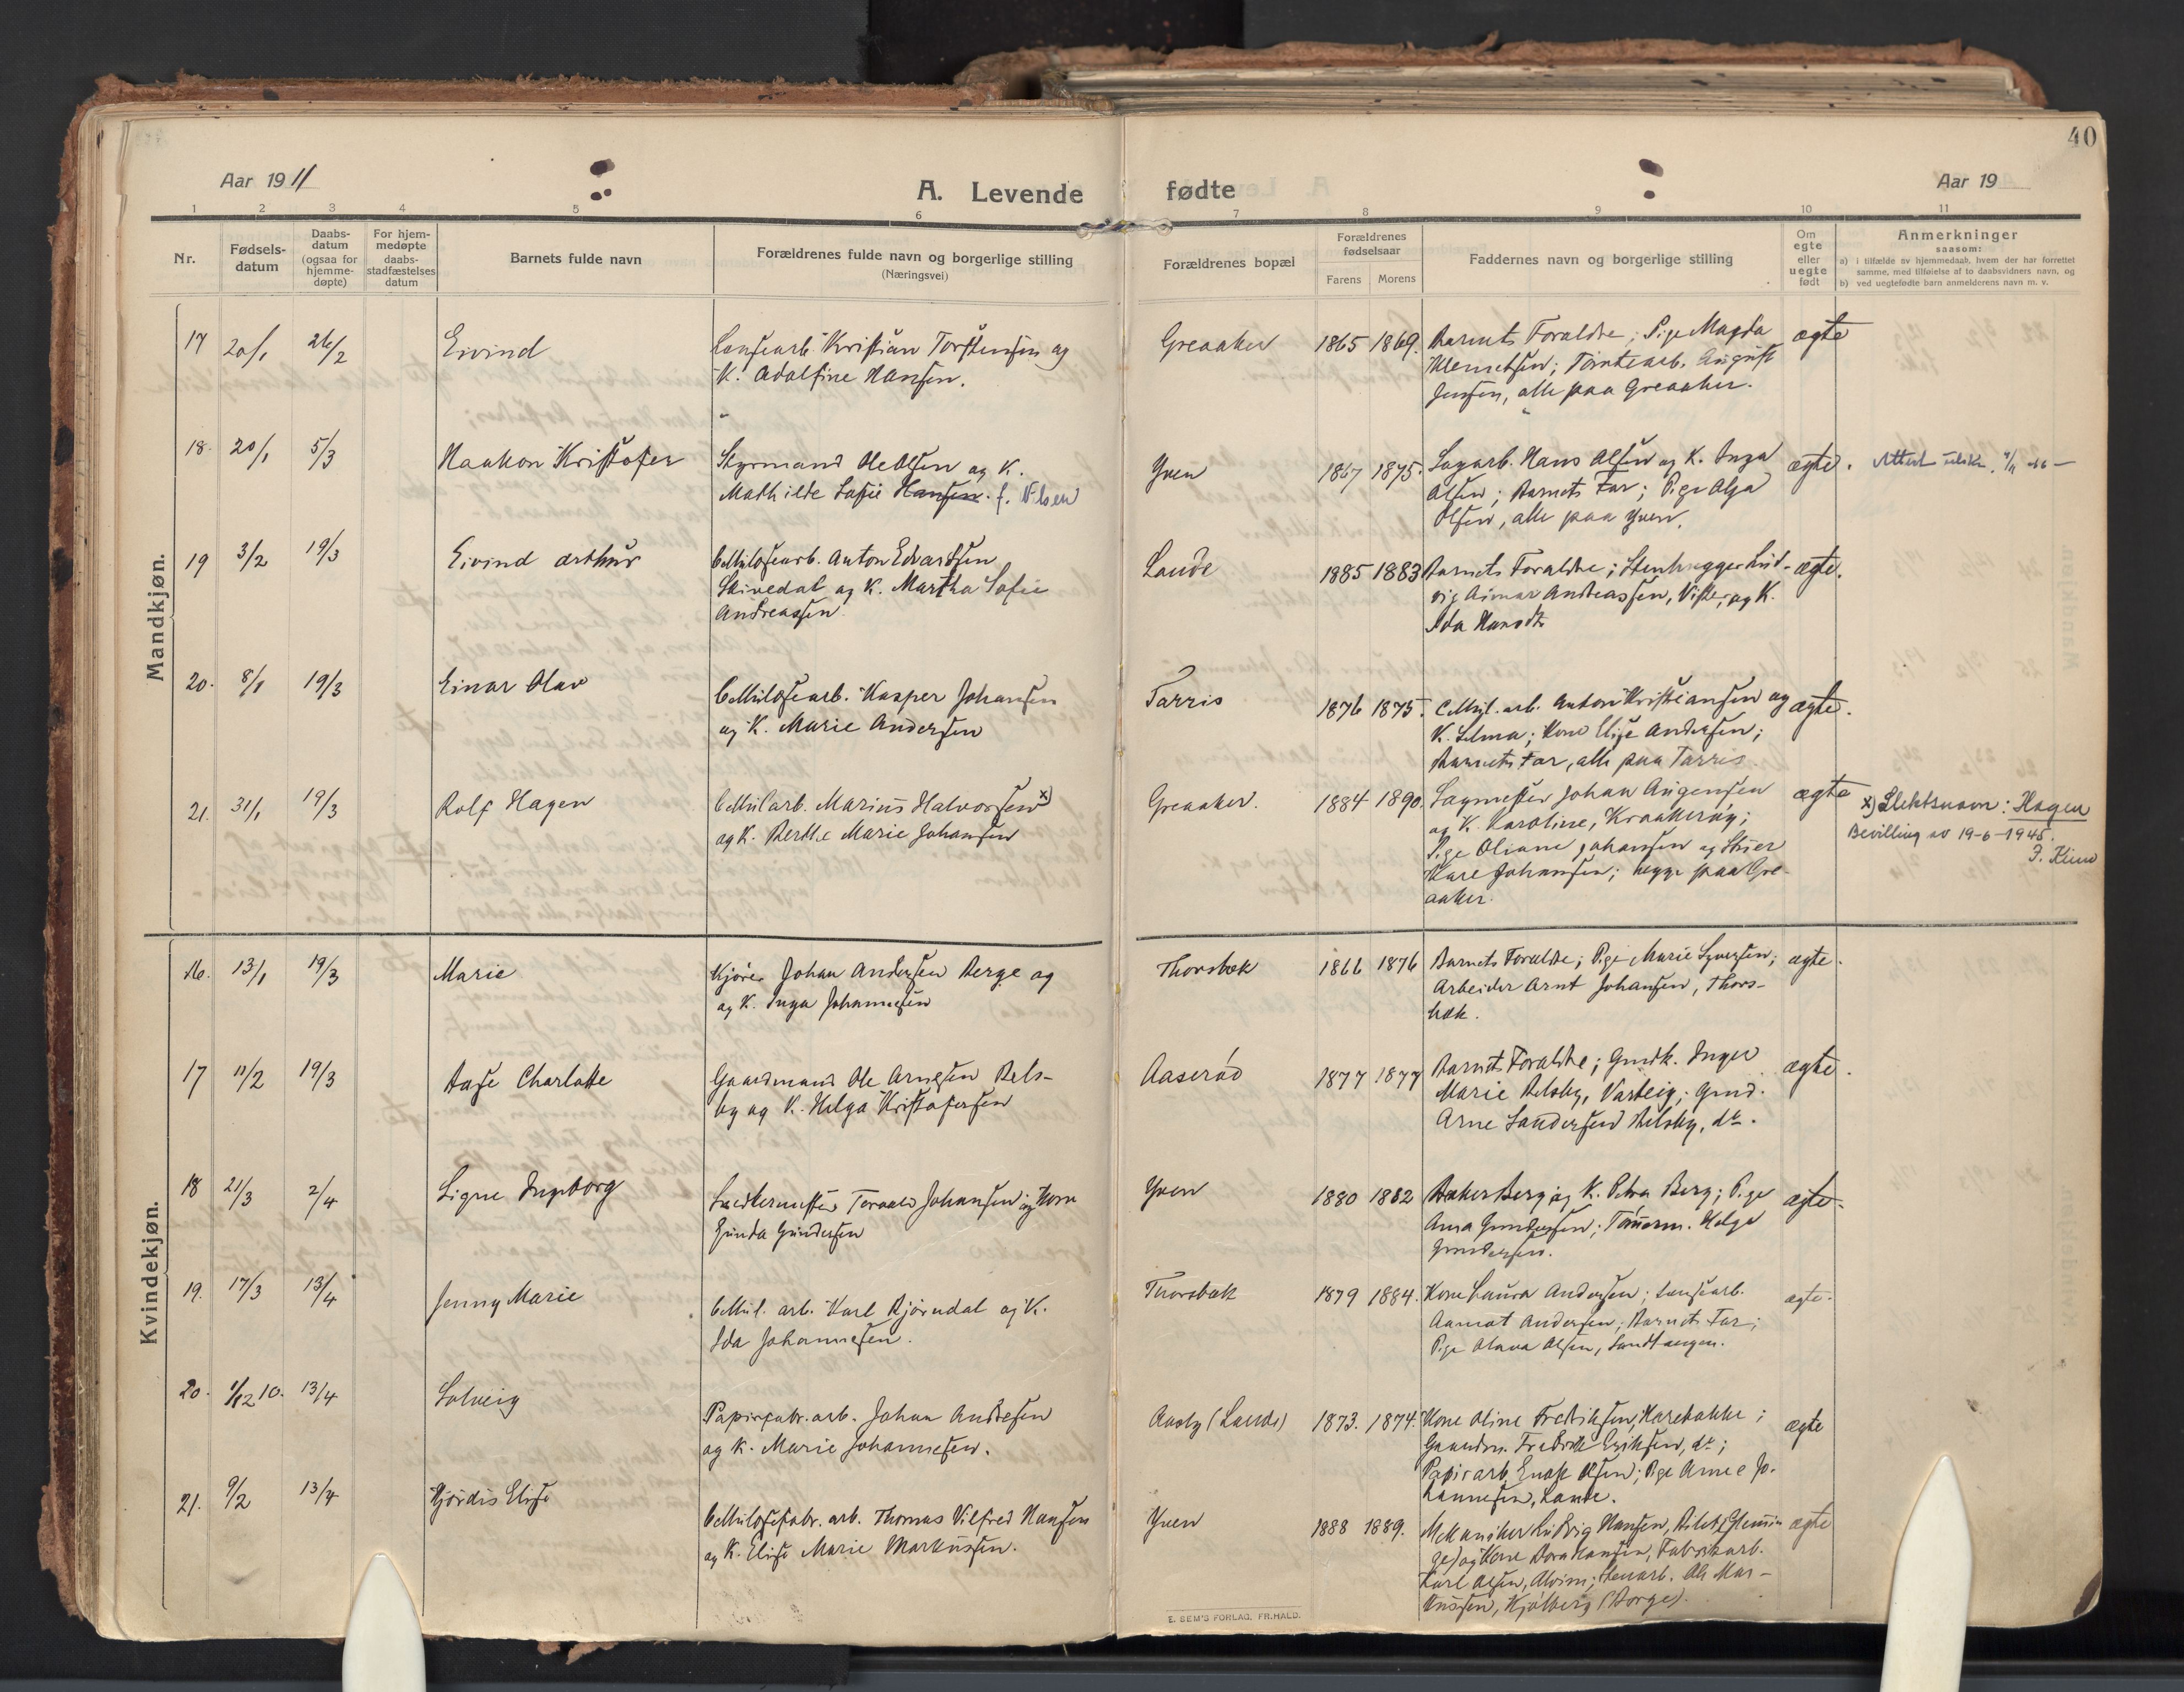 40
Aar 1911
A. Levende fødte
Aar 19
1 2 3 4 5 6 7 8 9 10 11
Nr.
Fødsels-
datum
Daabs-
datum
(ogsaa for
hjemme-
døpte)
For hjem-
medøpte
daabs-
stadfæstelses
datum
Barnets fulde navn
Forældrenes fulde navn og borgerlige stilling
(Næringsvei)
Forældrenes bopæl
Forældrenes
fødselsaar
Farens Morens
Faddernes navn og borgerlige stilling
Om
egte
eller
uegte
født
Anmerkninger
saasom:
a) i tilfælde av hjemmedaab, hvem der har forrettet
samme, med tilføielse af to daabsvidners navn, og
b) ved uegtefødte barn anmelderens navn m. v.
Mandkjøn.
17 20/1 26/2 Eivind
Lænsearb. Kristian Torstensen og
K. Adolfine Hansen.
Greaaker 1865 1869.
Barnets Forældre; Pige Magda
Klemetsen; Tomtearb. August
Jensen, alle paa Greaaker.
ægte
18. 20/1 5/3 Haakon Kristofer
Styrmand Ole Olsen og K.
Mathilde Sofie Hansen. f. Nilsen
Yven 1867 1875.
Sagarb. Hans Olsen og K. Inga
Olsen; Barnets Far; Pige Olga
Olsen, alle paa Yven.
ægte.
Attest
19 3/2 19/3 Eivind Arthur
Cellulosearb. Anton Edvardsen
Skivedal og K. Martha Sofie
Andreassen
Lande 1885 1883
Barnets Forældre; Stenhugger Lud-
vig Aimar Andreassen, Vister, og K.
Ida Hansdtr
ægte.
20. 8/1 19/3 Einar Olav
Cellulosearb. Kasper Johansen
og K. Marie Andersen
Tarris 1876 1875.
Cellul. arb. Anton Kristiansen og
K. Selma; Kone Elise Andersen;
Barnets Far, alle paa Tarris.
ægte.
21. 31/1 19/3 Rolf Hagen
Cellul arb. Marius Halvorsen x)
og K. Berthe Marie Johansen
Greaaker. 1884 1890.
Sagmester Johan Augensen
og K. Karoline, Kraakerøy;
Pige Oliane Johansen og
Karl Johansen; begge paa Gre-
aaker.
ægte
x) Slektsnavn: Hagen
Bevilling av 19-6-1945.
Kvindekjøn.
16. 13/1 19/3 Marie
Kjører Johan Andersen Berge og
og K. Inga Johannesen
Thorsbæk 1866 1876
Barnets Forældre; Pige Marie Syversen;
Arbeider Arnt Johansen, Thors-
bæk.
ægte.
17 11/2 19/3 Aase Charlotte
Gaardmand Ole Arnesen Bels-
by og K. Helga Kristofersen
Aaserød 1877 1877
Barnets Forældre; Gmdk. Inger
Marie Belsby, Varteig; Gmd.
Arne Sandersen Belsby, do.
ægte.
18 21/3 2/4 Signe Ingeborg
Torvald Johansen og Kone
Gunda Gundersen
Yven 1880 1882
Baker Berg og K. Petra Berg; Pige
Anna Gundersen; Tømerm. Helge
Gundersen.
ægte.
19. 17/3 13/4 Jenny Marie
Cellul. arb. Karl Bjørndal og K.
Ida Johannesen.
Thorsbæk 1879 1884.
Kone Laura Andersen; Lænsearb.
Andersen; Barnets Far;
Pige Olava Olsen, Sandtangen.
ægte.
20. 1/12 10. 13/4 Solveig
Papirfabr. arb. Johan Andresen
og K. Marie Johannesen.
Aasby (Lande) 1873. 1874.
Kone Oline Fredriksen, Harebakke;
Gaardm. Fredrik Eriksen, do;
Papirarb. Olsen; Pige Arne Jo-
hannesen, Lande.
ægte
21. 9/2 13/4 Hjørdis Elise
Cellulosefabr. arb. Thomas Vilfred Hansen
og K. Elise Marie Markussen.
Yven 1888 1889.
Mekaniker Ludvig Hansen, (Glemin-
ge) og Kone Dora Hansen, Fabrikarb.
Karl Olsen, Alvim; Stenarb. Ole Mar-
kussen, Kjølberg (Borge).
ægte
E. SEM'S FORLAG, FR.HALD.